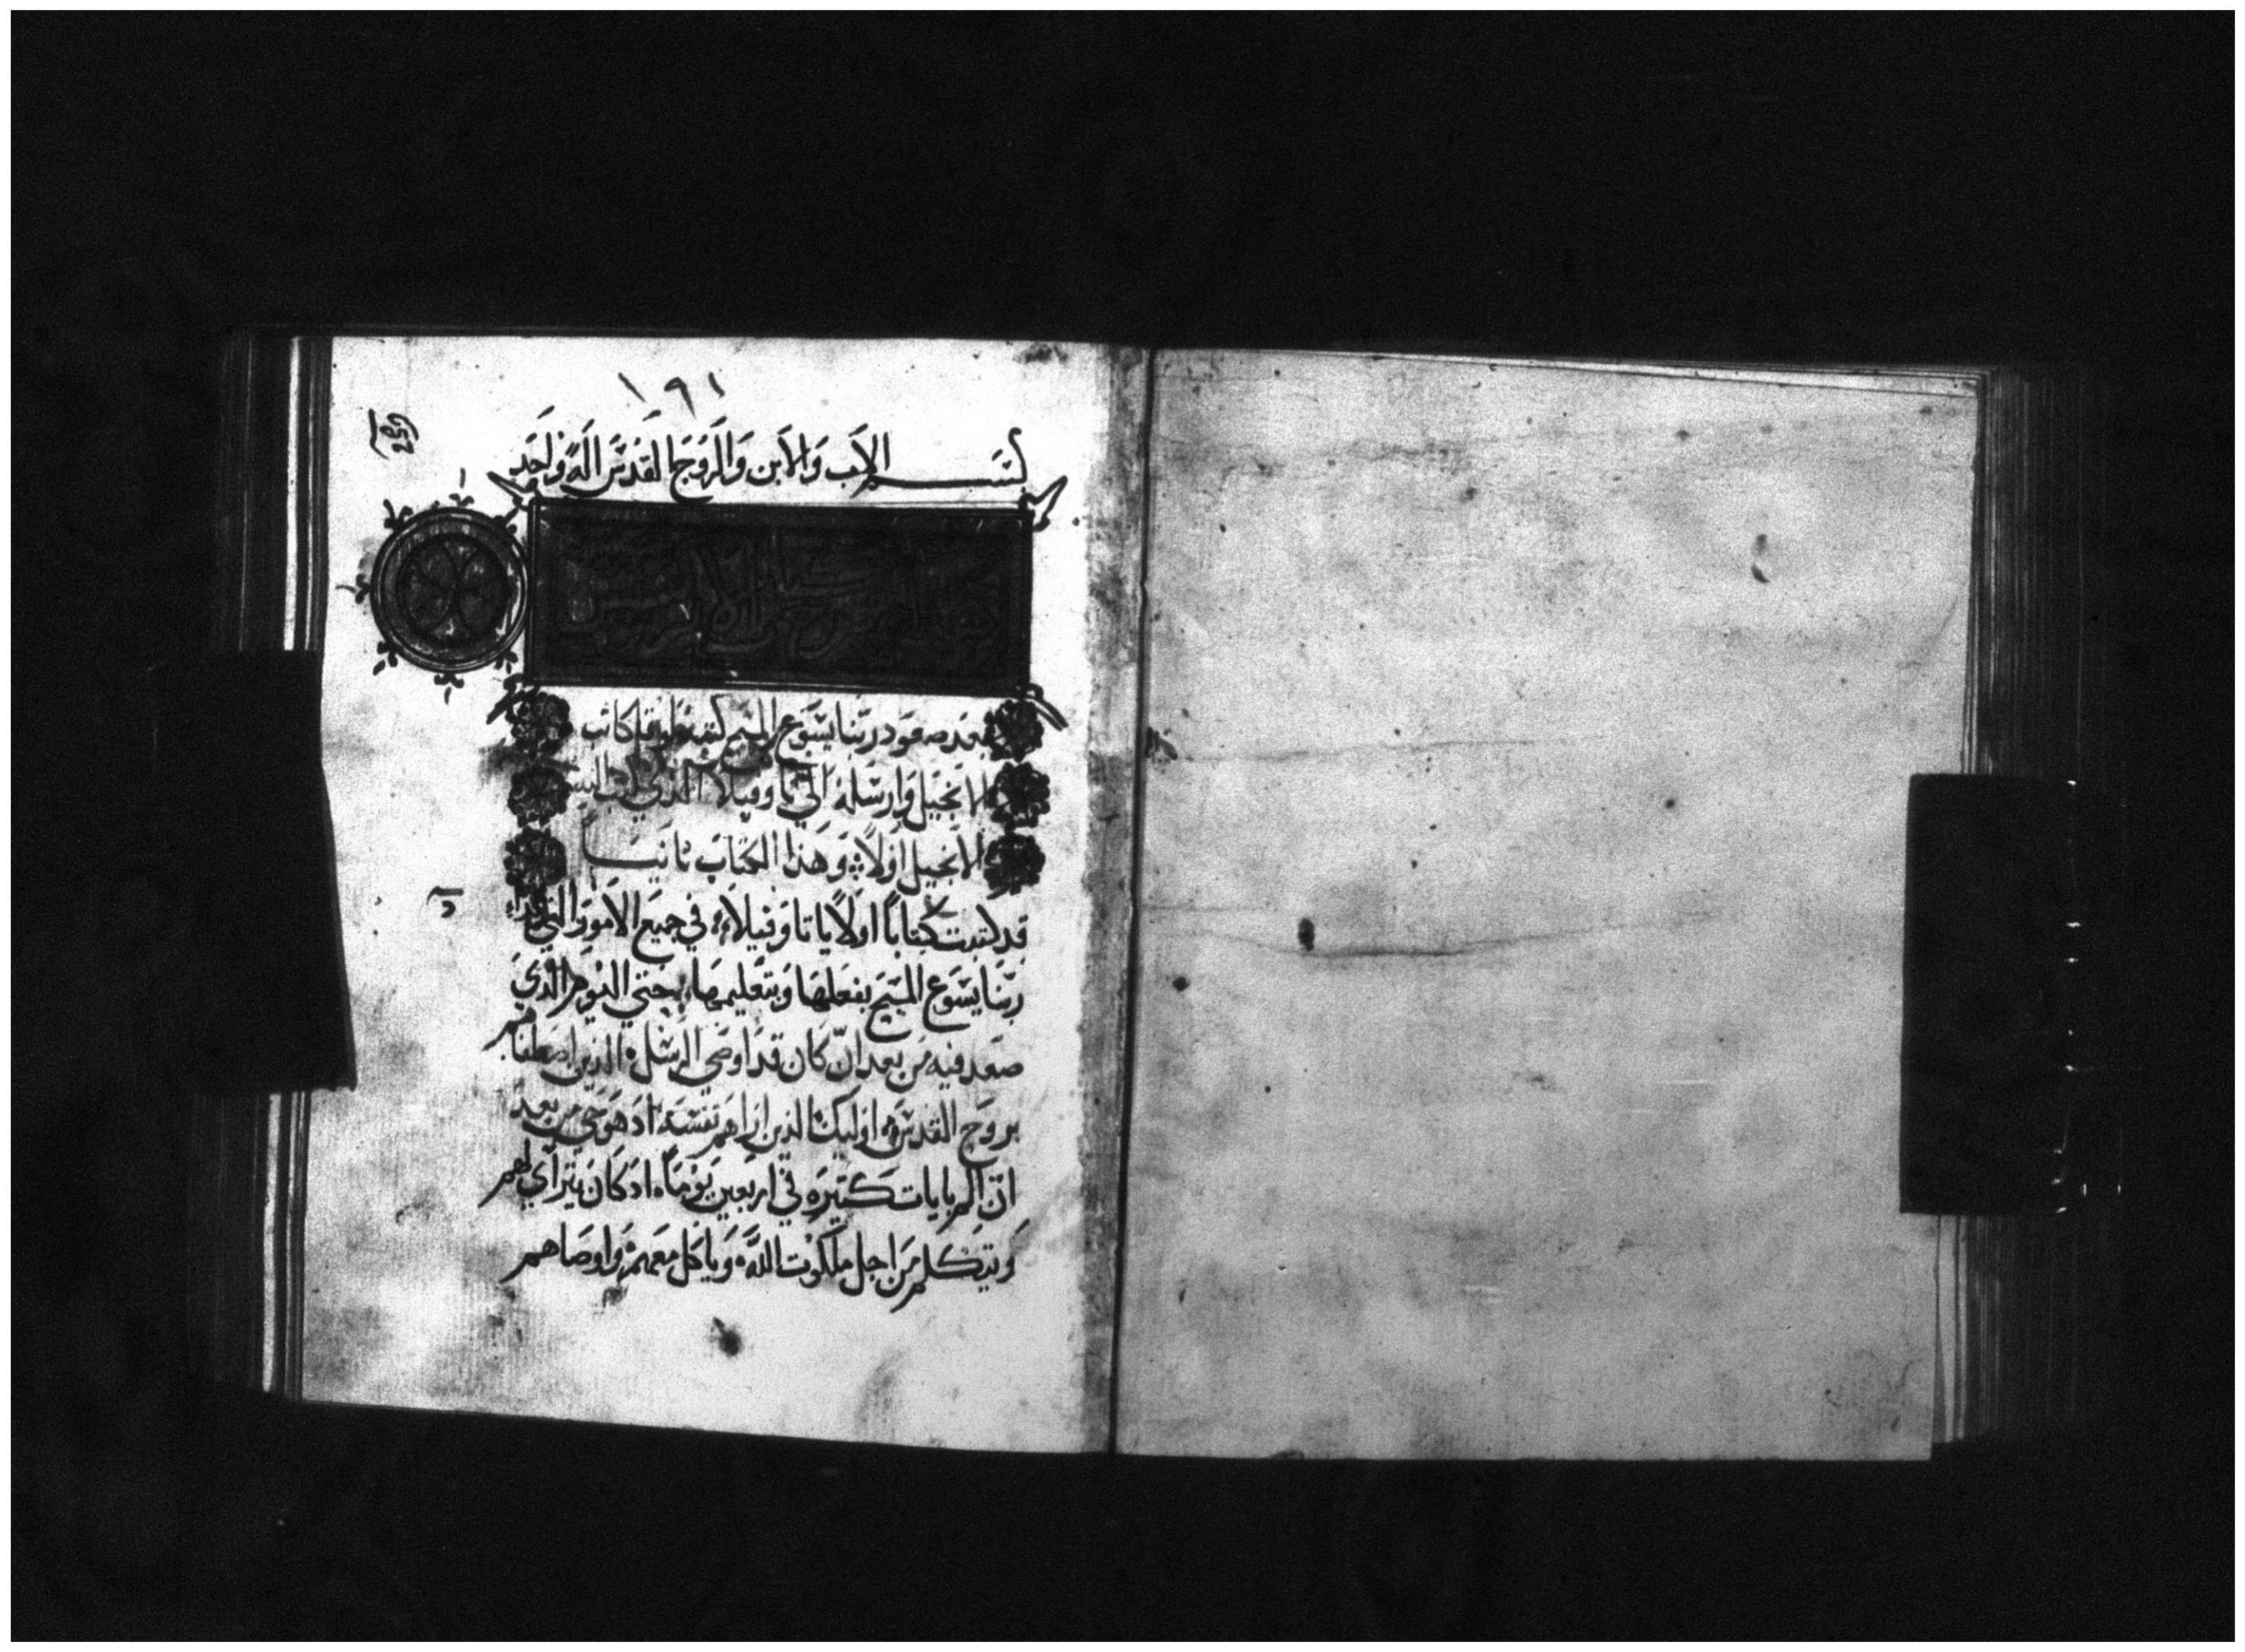 ١٩١
بسم الاب والابن والروح القدس اله واحد
بعد صعود ربنا يسوع المسيح كتبه لوقا كاتب
الانجيل وارسله الي تاوفيلا الذي كتب اليه
الانجيل اولا وهذا الكتاب ثانيا
قد كتبت كتابا اولا يا تاوفيلا في جميع الامور التي
ربنا يسوع المسيح بفعلها وبتعليمها حتي اليوم الذي
صعد فيه من بعد ان كان قد اوصي الرسل الذين اصطفاهم
بروح القدس اوليك الذين اراهم نفسه اد هو حي من بعد
ان الم بايات كتيره في اربعين يوما اد كان يترااي لهم
ويتكلم من اجل ملكوت الله وياكل معهم واوصاهم